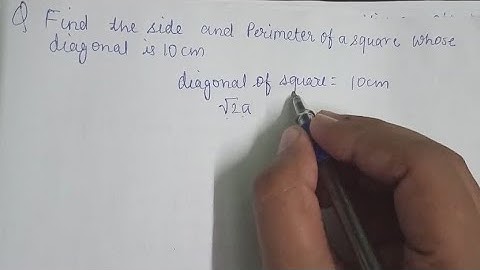 Q Find the side and Perimeter of a square whose
diagonal is 10cm
diagonal of square = 10cm
√2a